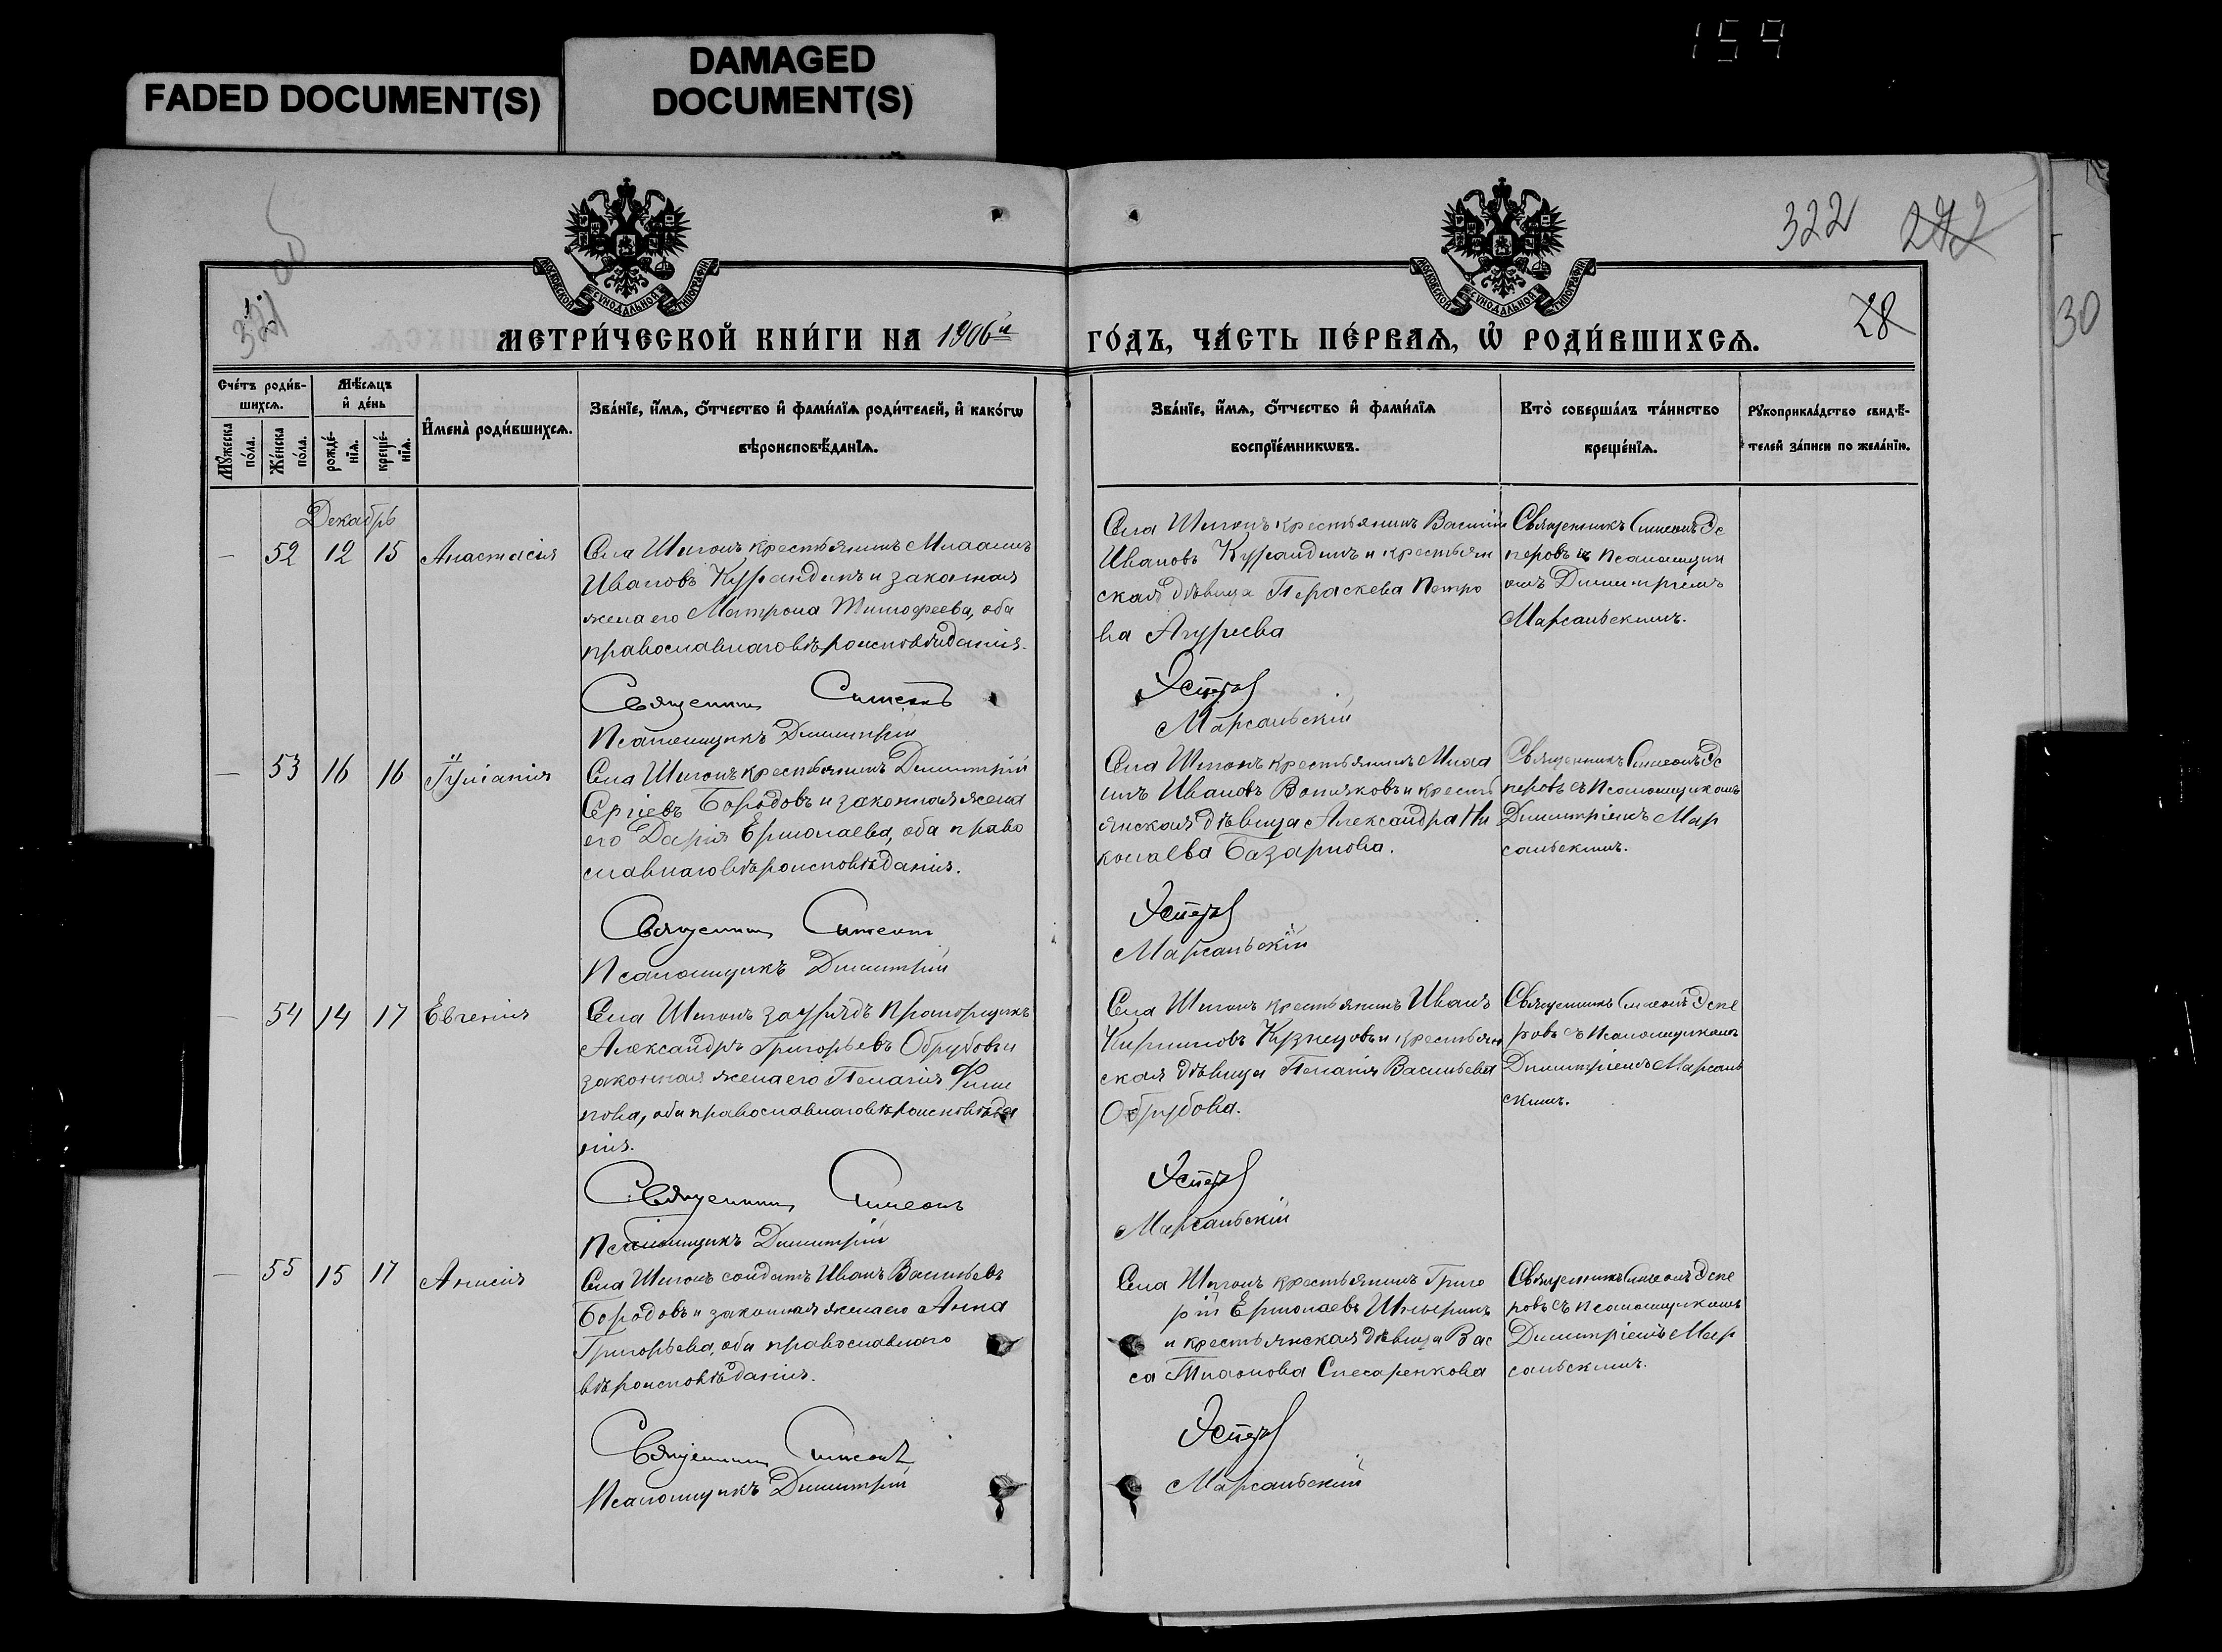 159
FADED DOCUMENT(S)
DAMAGED
DOCUMENT(S)
322
272
321 об
28
30
МОСКОВСКОЙ СѴНОДАЛЬНОЙ ТИПОГРАФІИ.
МОСКОВСКОЙ СѴНОДАЛЬНОЙ ТИПОГРАФІИ.
МЕТРИ́ЧЕСКОЙ КНИ́ГИ НА 1906й
ГО́ДЪ, ЧА́СТЬ ПЕ́РВАѦ, Ѽ РОДИ́ВШИХСѦ.
Сче́тъ роди́в-
шихсѧ.
Мꙋ́жеска
по́ла.
Же́нска
по́ла.
Мѣ́сѧцъ
и҆ де́нь
рожде́-
нїѧ.
креще́-
нїѧ.
И҆мена̀ роди́вшихсѧ.
Зва́нїе, и҆́мѧ, ѻ҆́тчество и҆ фами́лїѧ роди́телей, и҆ како́гѡ
вѣроисповѣ́данїѧ.
Зва́нїе, и҆́мѧ, ѻ҆́тчество и҆ фами́лїѧ
воспрїе́мникѡвъ.
Кто̀ соверша́лъ та́инство
креще́нїѧ.
Рꙋкоприкла́дство свидѣ́-
телей за́писи по жела́нїю.
Декабрь
— 52 12 15 Анастасія
Села Шигонъ крестьянинъ Михаилъ
Ивановъ Курандинъ и законная
жена его Матрона Тимофеева, оба
православнаго вѣроисповѣданія.
Священникъ Симеонъ
Псаломщикъ Димитрій
Села Шигонъ крестьянинъ Василій
Ивановъ Курандинъ и крестьян
ская дѣвица Параскева Петро
ва Агуреева
Эсперов
Марсальскій
Священникъ Симеонъ Эс
перовъ съ псаломщик
омъ Димитріемъ
Марсальскимъ.
— 53 16 16 Іуліанія
Села Шигонъ крестьянинъ Димитрій
Сергіевъ Бородовъ и законная жена
его Дарія Ермолаева, оба право
славнаго вѣроисповѣданія.
Священникъ Симеонъ
Псаломщикъ Димитрій
Села Шигонъ крестьянинъ Миха
илъ Ивановъ Вопияковъ и кресть
янская дѣвица Александра Ни
колаева Базарнова.
Эсперов
Марсальскій
Священникъ Симеонъ Эс
перовъ съ псаломщикомъ
Димитріемъ Мар
сальскимъ.
— 54 14 17 Евгенія
Села Шигонъ заурядъ прапорщикъ
Александръ Григорьевъ Обрубовъ и
законная жена его Пелагія Фили
пова, оба православнаго вѣроисповѣда
нія.
Священникъ Симеонъ
Псаломщикъ Димитрій
Села Шигонъ крестьянинъ Иванъ
Кириловъ Кузнецовъ и крестьян
ская дѣвица Пелагія Васильева
Обрубова.
Эсперов
Марсальскій
Священникъ Симеонъ Эспе
ровъ съ псаломщикомъ
Димитріемъ Марсаль
скимъ.
— 55 15 17 Анисія
Села Шигонъ солдатъ Иванъ Васильевъ
Бородовъ и законная жена его Анна
Григорьева, оба православнаго
вѣроисповѣданія.
Священникъ Симеонъ
Псаломщикъ Димитрій
Села Шигонъ крестьянинъ Григо
рій Ермолаевъ
и крестьянская дѣвица Вас
са Тихонова Слесаренкова
Эсперов
Марсальскій
Священникъ Симеонъ Эспе
ровъ съ псаломщикомъ
Димитріемъ Мар
сальскимъ.